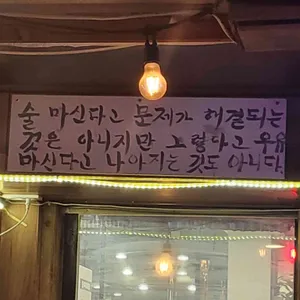 술 마신다고 문제가 해결되는
것은 아니지만 그렇다고 우유
마신다고 나아지는 것도 아니다.